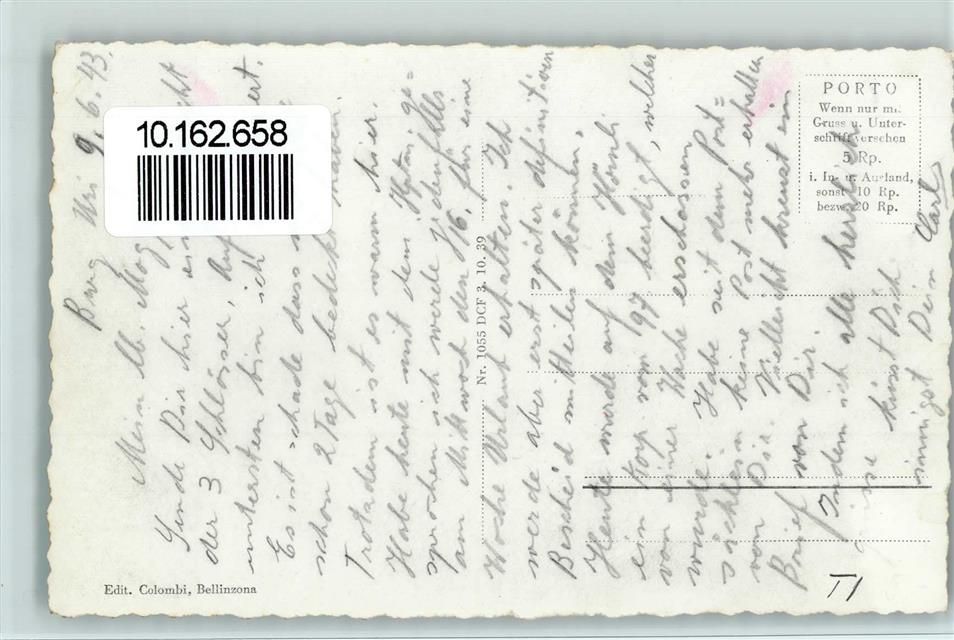 Brug Uri 9.6.43.
Mein lb.
Sende Dir hier
der 3 Schlösser, Auf
untersten bin ich
Es ist schade dass
schon 2 Tage bedeckt
Trotzdem ist es warm hier.
Habe heute mit dem Hptm ge=
sprochen ich werde jedenfalls
am Mittwoch den 16. für eine
Woche Urlaub erhalten. Ich
werde aber erst später definitiven
Bescheid mitteilen können.
Heute wurde auf dem Hörnli
ein Kop vom 97 beerdigt, welcher
von einer Wache erschossen
wurde. Habe seit dem Post=
keine Post mehr erhalten
von Dir. Vielleicht kreuzt ein
Brief von Dir.
Indem ich alle herzlich
küsst Dich
innigst Dein Carl
10.162.658
PORTO
Wenn nur m.
Gruss u. Unter-
schrift versehen
5 Rp.
i. In- u. Ausland,
sonst 10 Rp.
bezw. 20 Rp.
Nr. 1055 DCF 3. 10. 39
Edit. Colombi, Bellinzona
TI